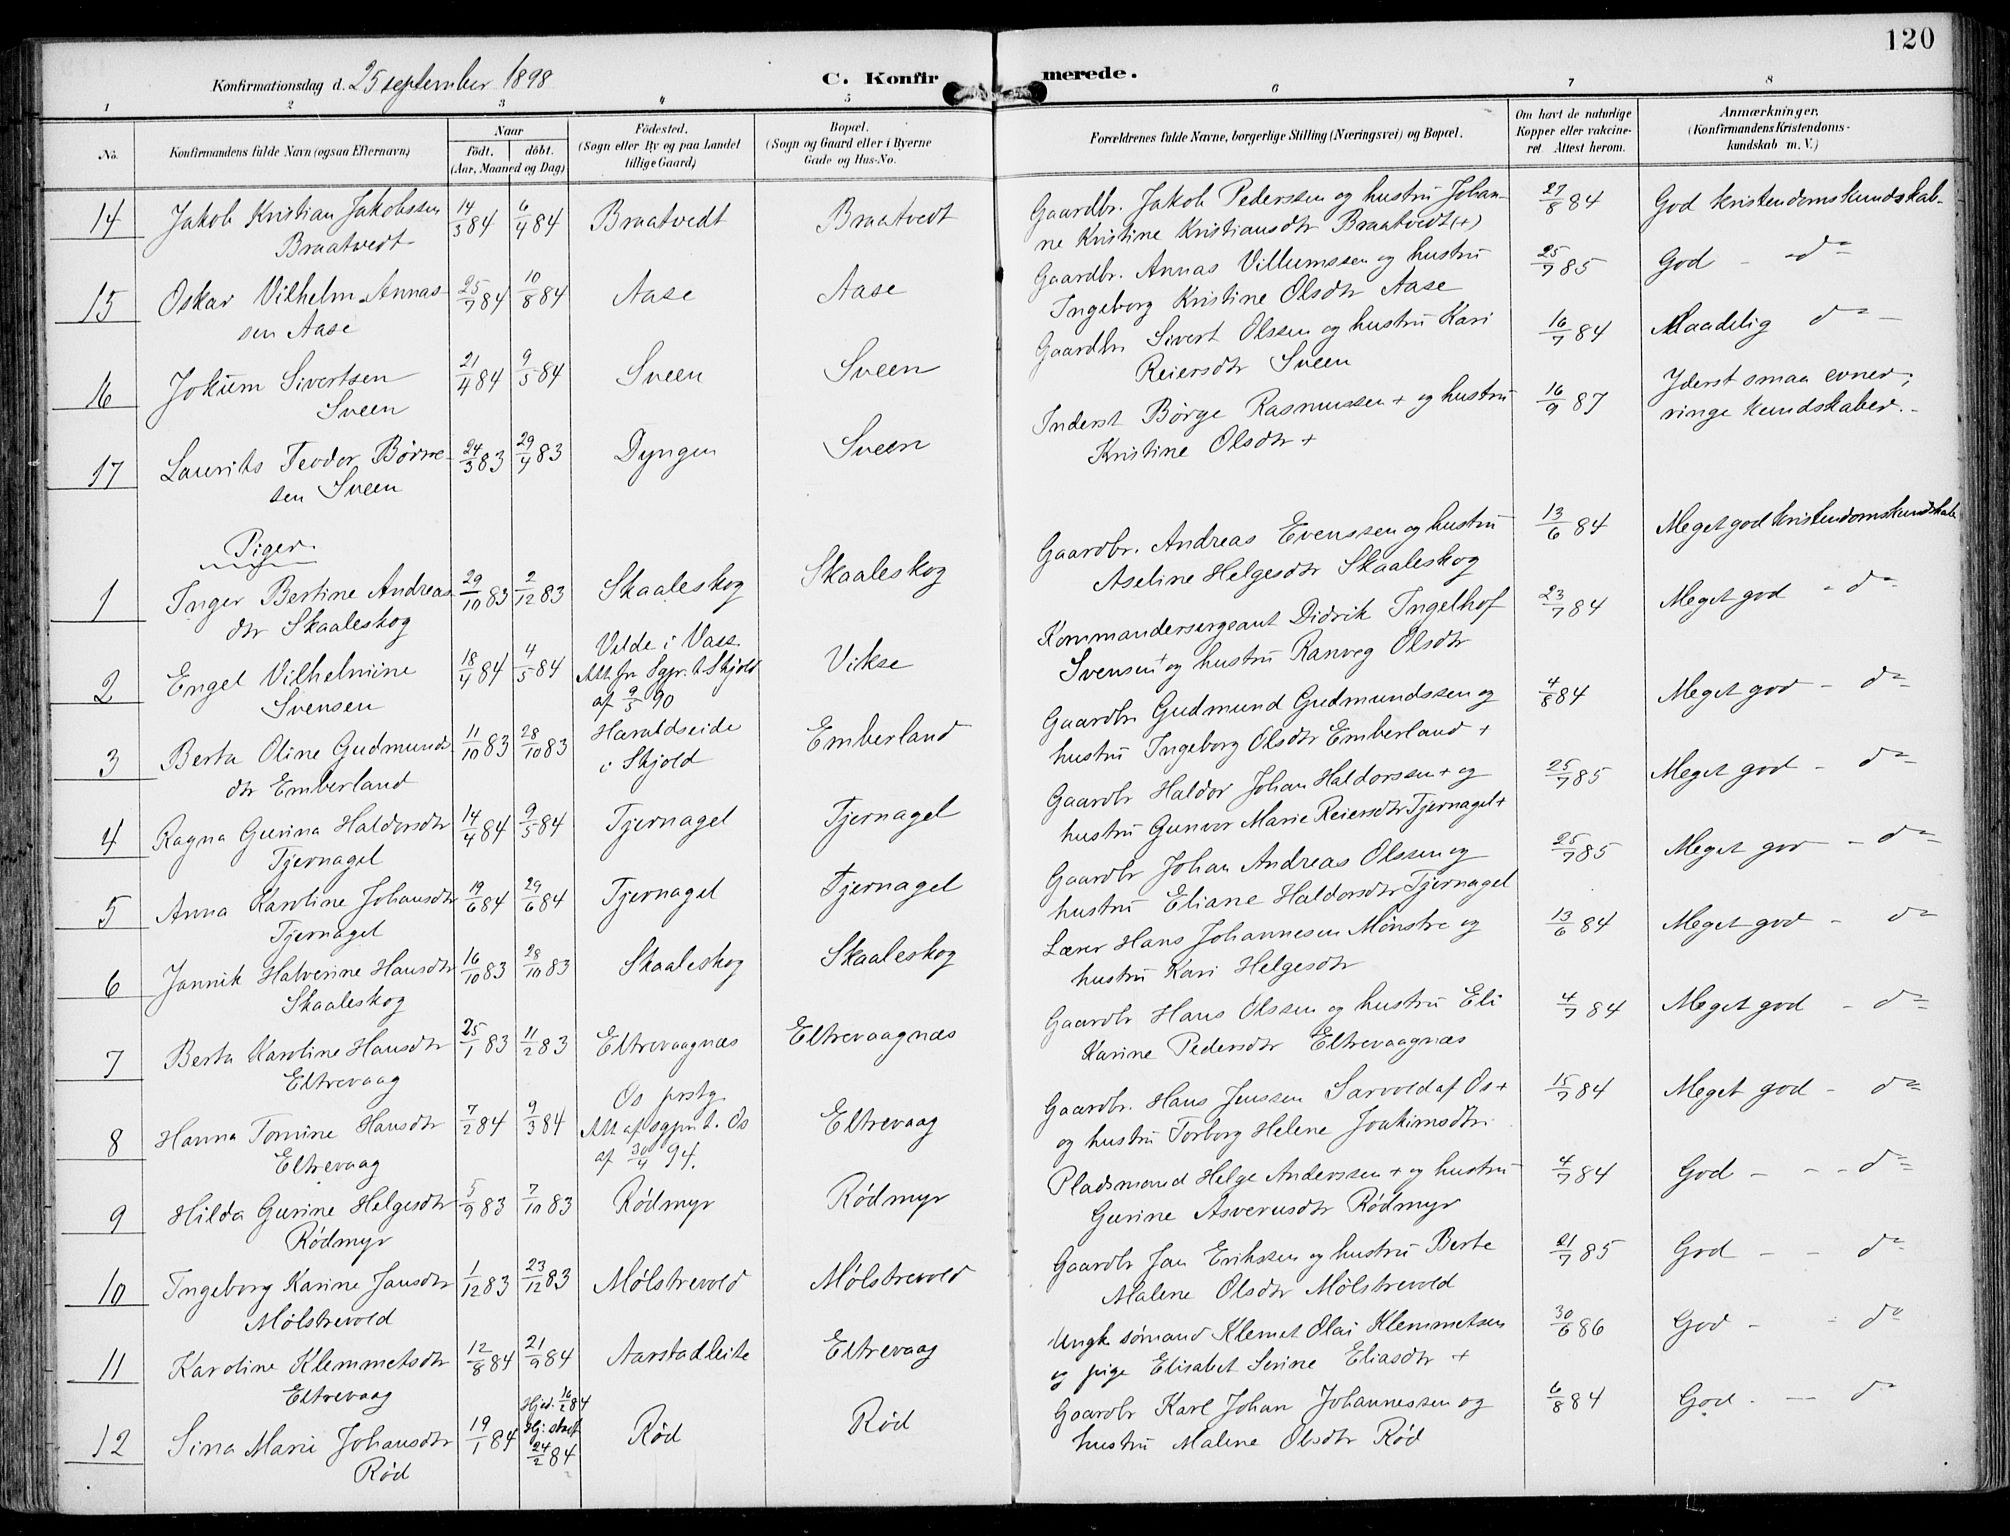 120
Konfirmationsdag d. 25 september 1898
C. Konfirmerede.
1 2 3 4 5 6 7 8
No. Konfirmandens fulde Navn (ogsaa Efternavn) Naar Födt. döbt. (Aar, Maaned og Dag) Födested. (Sogn eller By og paa Landet tillige Gaard) Bopæl. (Sogn og Gaard eller i Byerne Gade og Hus-No. Forældrenes fulde Navne, borgerlige Stilling (Næringsvei) og Bopæl. Om havt de naturlige Kopper eller vakcineret Attest herom. Anmærkninger. (Konfirmandens Kristendomskundskab m. V.)
14 Jakob Kristian Jakobssen 14/3 84 6/4 84 Braatvedt Braatvedt Gaardbr. Jakob Pederssen og hustru Johan- 27/8 84 God kristendomskundskab-
Braatvedt ne Kristine Kristiansdtr Braatvedt (+)
15 Oskar Vilhelm Annas- 25/7 84 10/8 84 Aase Aase Gaardbr. Annas Villumssen og hustru 25/7 85 God - do
sen Aase Ingeborg Kristine Olsdtr Aase
16 Jokum Sivertsen 21/4 84 9/5 84 Sveen Sveen Gaardbr Sivert Olssen og hustru Kari 16/7 84 Maadelig do -
Sveen Reiersdtr Sveen
17 Laurits Teodor Børre- 24/3 83 29/4 83 Dyngen Sveen Inderst Børge Rasmussen + og hustru 16/9 87 Yderst smaa evner;
sen Sveen Kristine Olsdtr + ringe kundskaber.
Piger
1 Inger Bertine Andreas- 29/10 83 2/12 83 Skaaleskog Skaaleskog Gaardbr. Andreas Evenssen og hustru 13/6 84 Meget god kristendomskundskab
dtr Skaaleskog Aseline Helgesdtr Skaaleskog
2 Engel Vilhelmine 18/4 84 4/5 84 Velde i Vats Vikse Kommandersergeant Didrik Ingelhof 23/7 84 Meget god - do
Svensen Att. fr. Sgpr. t. Skjold af 9/5 90 Svensen + og hustru Ranveg Olsdtr
3 Berta Oline Gudmunds- 11/10 83 28/10 83 Haraldseide i Skjold Emberland Gaardbr Gudmund Gudmundssen og 4/8 84 Meget god - do
dtr Emberland hustru Ingeborg Olsdtr Emberland +
4 Ragna Gurina Haldorsdtr 14/4 84 9/5 84 Tjernagel Tjernagel Gaardbr Haldor Johan Haldorssen + og 25/7 85 Meget god - do
Tjernagel hustru Gunvor Marie Reiersdtr Tjernagel +
5 Anna Karoline Johansdtr 19/6 84 29/6 84 Tjernagel Tjernagel Gaardbr Johan Andreas Olssen og 25/7 85 Meget god - do
Tjernagel hustru Eliane Haldorsdtr Tjernagel
6 Jannik Halverine Hansdtr 16/10 83 28/10 83 Skaaleskog Skaaleskog Lærer Hans Johannesen Mønstre og 13/6 84 Meget god - do
Skaaleskog hustru Kari Helgesdtr
7 Berta Karoline Hansdtr 25/1 83 11/2 83 Eltrevaagnæs Eltrevaagnæs Gaardbr Hans Olssen og hustru Eli 4/7 84 Meget god - do
Eltrevaag Karine Pedersdtr Eltrevaagnæs
8 Hanna Tomine Hansdtr 7/2 84 9/3 84 Os prstg. Eltrevaag Gaardbr. Hans Jenssen Sarvold af Os + 15/7 84 Meget god - do
Eltrevaag Att af sgpr. t. Os af 30/4 94. og hustru Torborg Helene Joakimsdtr.
9 Hilda Gurine Helgesdtr 5/9 83 7/10 83 Rødmyr Rødmyr Pladsmand Helge Anderssen + og hustru 4/7 84 God - - - do
Rødmyr Gurine Asverusdtr Rødmyr
10 Ingeborg Karine Jansdtr 1/12 83 23/12 83 Mølstrevold Mølstrevold Gaardbr Jan Erikssen og hustru Berte 21/7 85 God - - do
Mølstrevold Malene Olsdtr Mølstrevold
11 Karoline Klemmetsdtr 12/8 84 21/9 84 Aarstadleite Eltrevaag Ungk. sømand Klemet Olai Klemmetsen 30/6 86 God - - do
Eltrevaag og pige Elisabet Serine Eliasdtr +
12 Sina Marie Johansdtr 19/1 84 Hjed. 16/2 84 24/2 84 Rød Rød Gaardbr Karl Johan Johannessen og 6/8 84 God. - do
Rød hustru Malene Olsdtr Rød